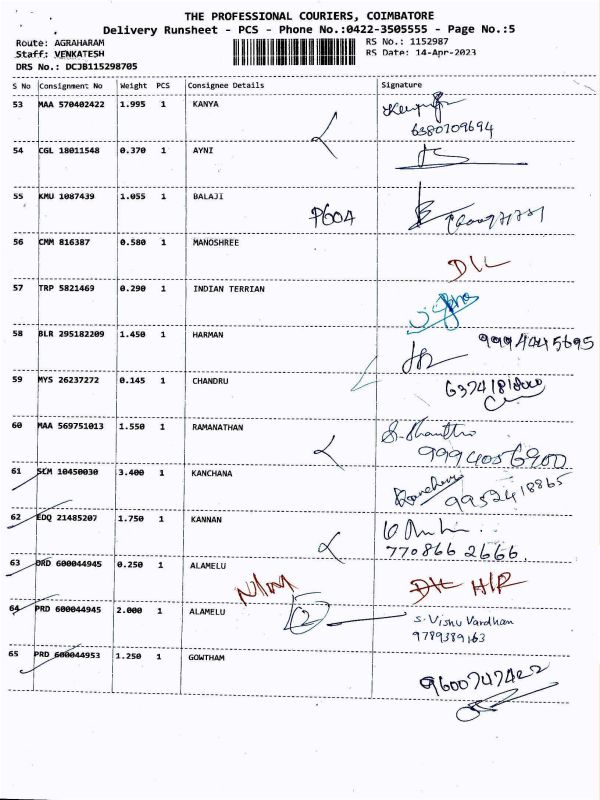 THE PROFESSIONAL COURIERS, COIMBATORE
Delivery Runsheet - PCS - Phone No.:0422-3505555 - Page No.:5
Route: AGRAHARAM RS No.: 1152987
Staff: VENKATESH RS Date: 14-Apr-2023
DRS No.: DCJB115298705
S No Consignment No Weight PCS Consignee Details Signature
53 MAA 570402422 1.995 1 KANYA
6380709694
54 CGL 18011548 0.370 1 AYNI
55 KMU 1087439 1.055 1 BALAJI
56 CMM 816387 0.580 1 MANOSHREE
D/L
57 TRP 5821469 0.290 1 INDIAN TERRIAN
58 BLR 295182209 1.450 1 HARMAN
9994445695
59 MYS 26237272 0.145 1 CHANDRU
60 MAA 569751013 1.550 1 RAMANATHAN
9994056900
61 SLM 10450030 3.400 1 KANCHANA
Kanchana
9952418865
62 EDQ 21485207 1.750 1 KANNAN
7708662666
63 DRD 600044945 0.250 1 ALAMELU
64 PRD 600044945 2.000 1 ALAMELU
2
S. Vishnu Vardhan
9789389163
65 PRD 600044953 1.250 1 GOWTHAM
9600747422